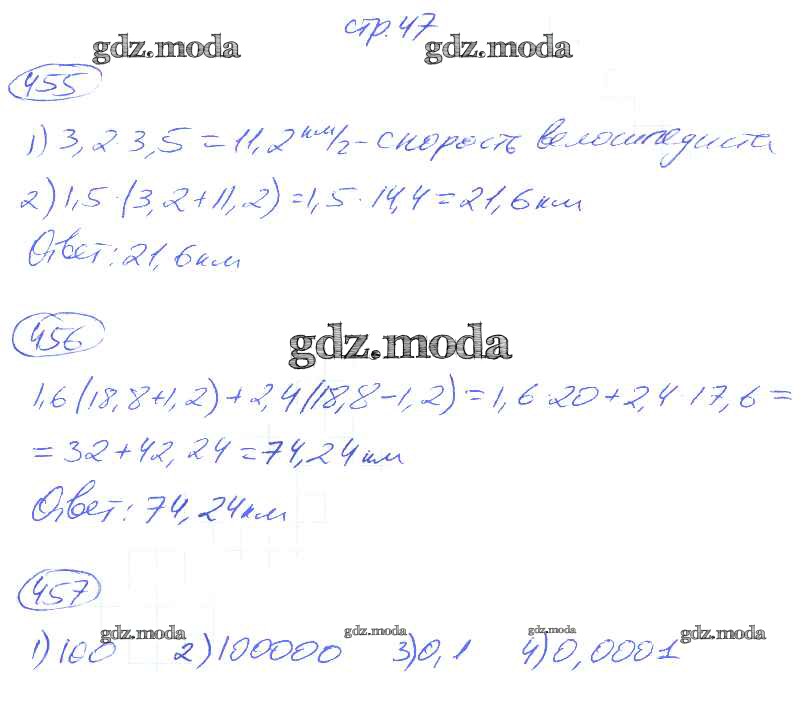 стр. 47
gdz.moda gdz.moda
455
1) 3,2·3,5=11,2 км/ч - скорость велосипедиста
2) 1,5·(3,2+11,2)=1,5·14,4=21,6 км
Ответ: 21,6 км
456
gdz.moda
1,6(18,8+1,2)+2,4(18,8-1,2)=1,6·20+2,4·17,6=
=32+42,24=74,24 км
Ответ: 74,24 км
457
gdz.moda gdz.moda gdz.moda gdz.moda
1) 100 2) 100000 3) 0,1 4) 0,0001